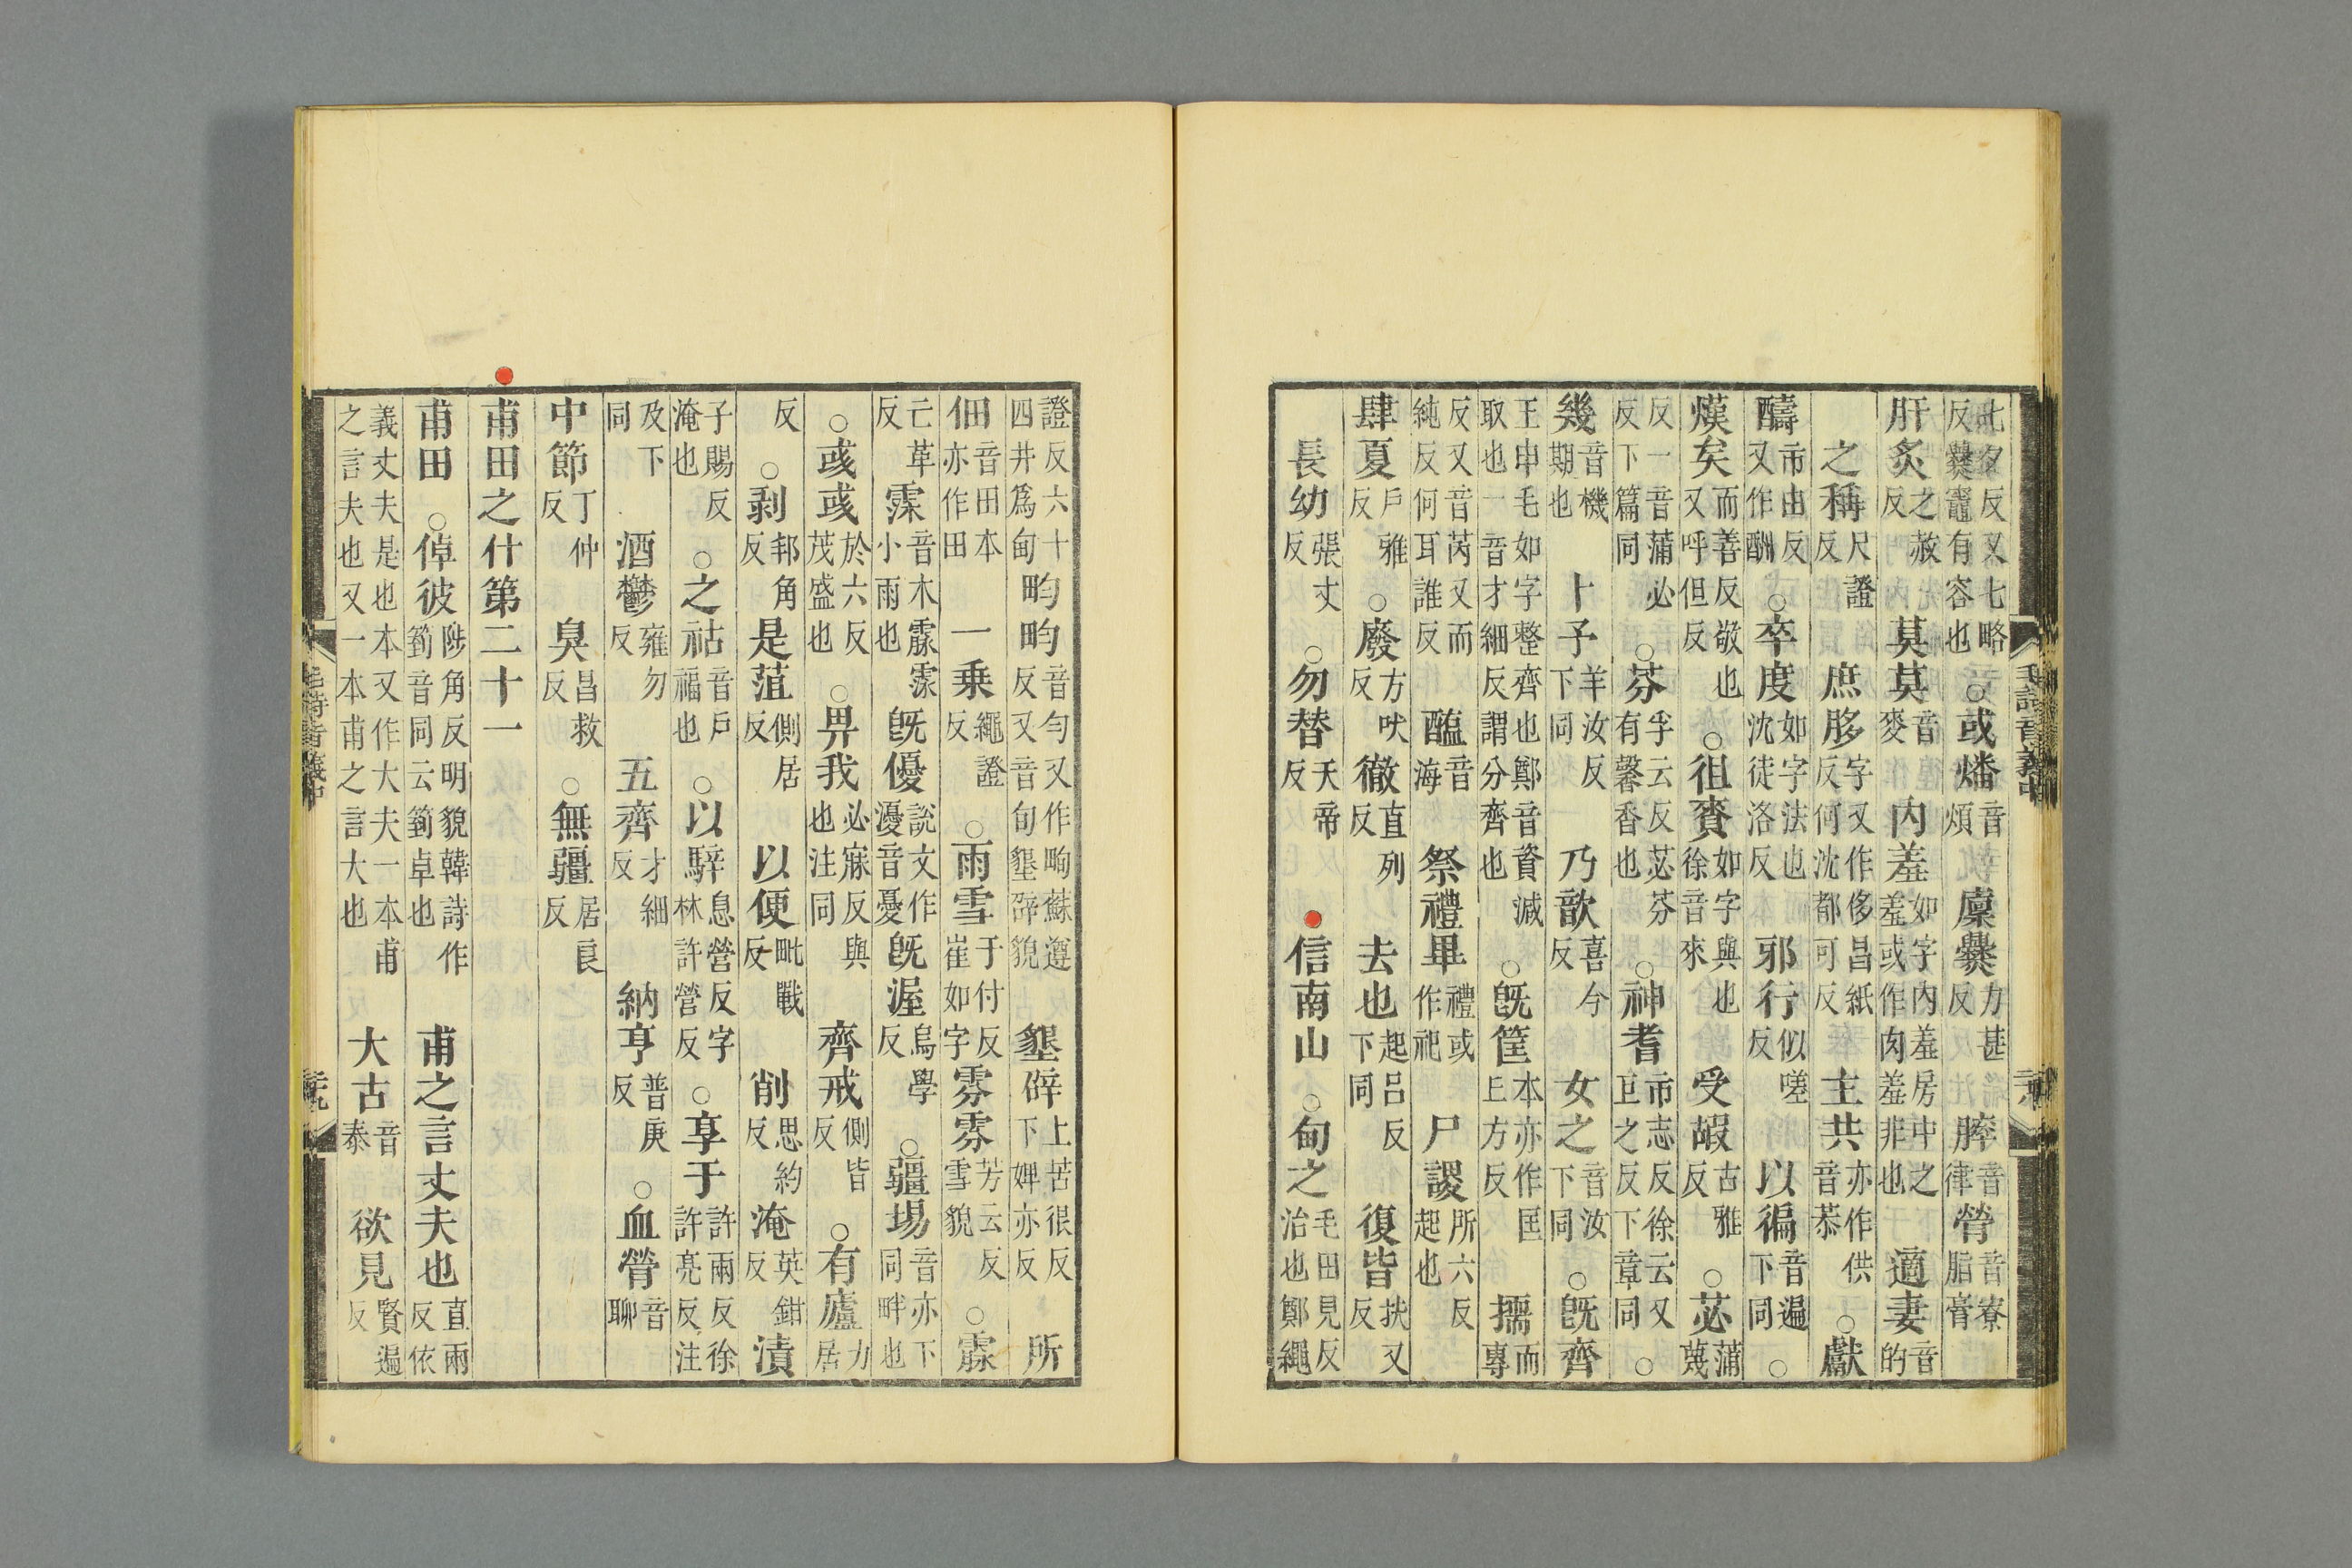 七夕反又七略反爨竈有容也○或燔音煩 廩爨力甚反 膟音律膋音寮脂膏
肝炙之赦反 莫莫音麥 內羞如字內羞房中之羞或作肉羞非也 適妻音的
之稱尺證反 庶䏧字又作侈昌紙反何沈都可反 主共亦作供音恭○獻
醻市由反又作酬○卒度如字法也沈徒洛反 邪行似嗟反 以徧音遍下同○
熯矣而善反敬也又呼但反○徂賚如字與也徐音來 受嘏古雅反○苾蒲蔑
反一音蒲必反下篇同○芬孚云反苾芬有馨香也○神耆市志反徐云又巨之反下章同○
幾音機期也 卜予羊汝反下同 乃歆喜今反 女之音汝下同○旣齊
王申毛如字整齊也鄭音資減取也一音才細反謂分齊也○旣筐本亦作匡丘方反 擩而專
反又音芮又而純反何耳誰反 醢音海 祭禮畢禮或作祀 尸謖所六反起也
肆夏戶雅反○廢方吠反 徹直列反 去也起呂反下同 復皆扶又反
長幼張丈反○勿替天帝反 信南山○甸之毛田見反治也鄭繩
毛詩音義中
證反六十四井爲甸 畇畇音勻又作㽦蘇遵反又音旬墾辟貌 墾辟上苦很反下婢亦反 所
佃音田本亦作田 一乘繩證反○雨雪于付反崔如字 雰雰芳云反雪貌○霢
亡革反 霂音木霢霂小雨也 旣優說文作瀀音憂 旣渥烏學反○疆埸音亦下同畔也
○彧彧於六反茂盛也○畀我必寐反與也注同 齊戒側皆反○有廬力居
反○剥邦角反 是菹側居反 以便毗戰反 削思約反 淹英鉗反 漬
子賜反淹也○之祜音戶福也○以騂息營反字林許營反○享于許兩反徐許亮反注
及下同 酒鬱雍勿反 五齊才細反 納亨普庚反○血膋音聊
中節丁仲反 臭昌救反○無疆居良反
甫田之什第二十一
甫田○倬彼陟角反明貌韓詩作箌音同云箌卓也 甫之言丈夫也直兩反依
義丈夫是也本又作大夫一本甫之言夫也又一本甫之言大也 大古音泰 欲見賢遍反
毛詩音義中